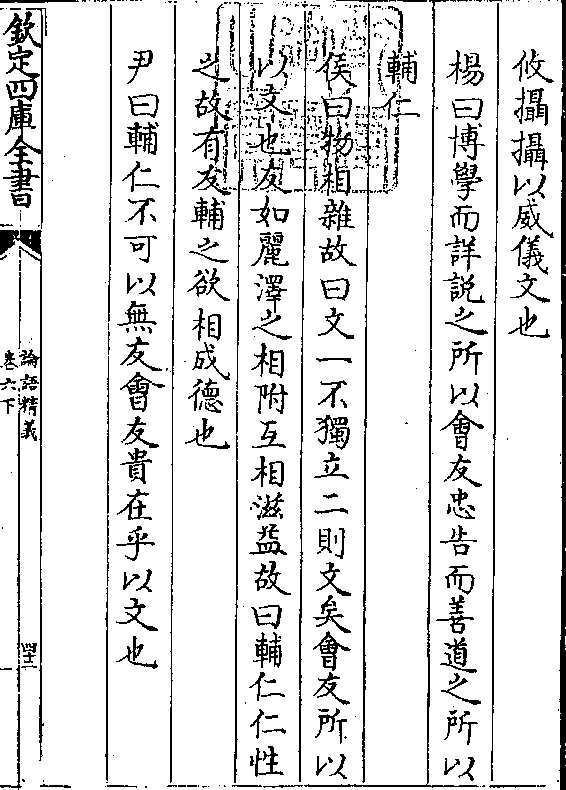 攸攝攝以威儀文也
楊曰博學而詳説之所以會友忠告而善道之所以
輔仁
侯曰物相雜故曰文一不獨立二則文矣會友所以
以文也友如麗澤之相附互相滋益故曰輔仁仁性
之故有友輔之欲相成德也
尹曰輔仁不可以無友會友貴在乎以文也
欽定四庫全書
論語精義
卷六下